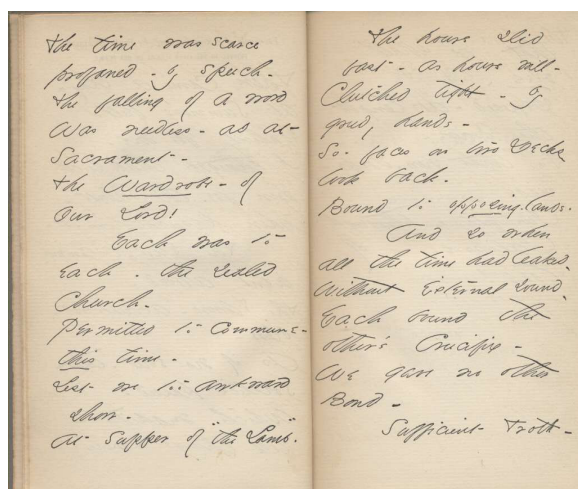 The time was scarce
profaned - by speech -
The falling of a word
Was needless - as at -
Sacrament -
The Wardrobe - of
Our Lord!
Each was to
Each - the sealed
Church -
Permitted to commune -
this time -
Lest we too awkward
show -
At Supper of "the Lamb."
The hours slid
fast - as hours will -
Clutched tight - by
greedy hands -
So - faces on two Decks
look back -
Bound to opposing lands.
And so when
all the time had leaked,
Without External Sound,
Each bound the
other's Crucifix -
We gave no other
Bond -
Sufficient Troth -